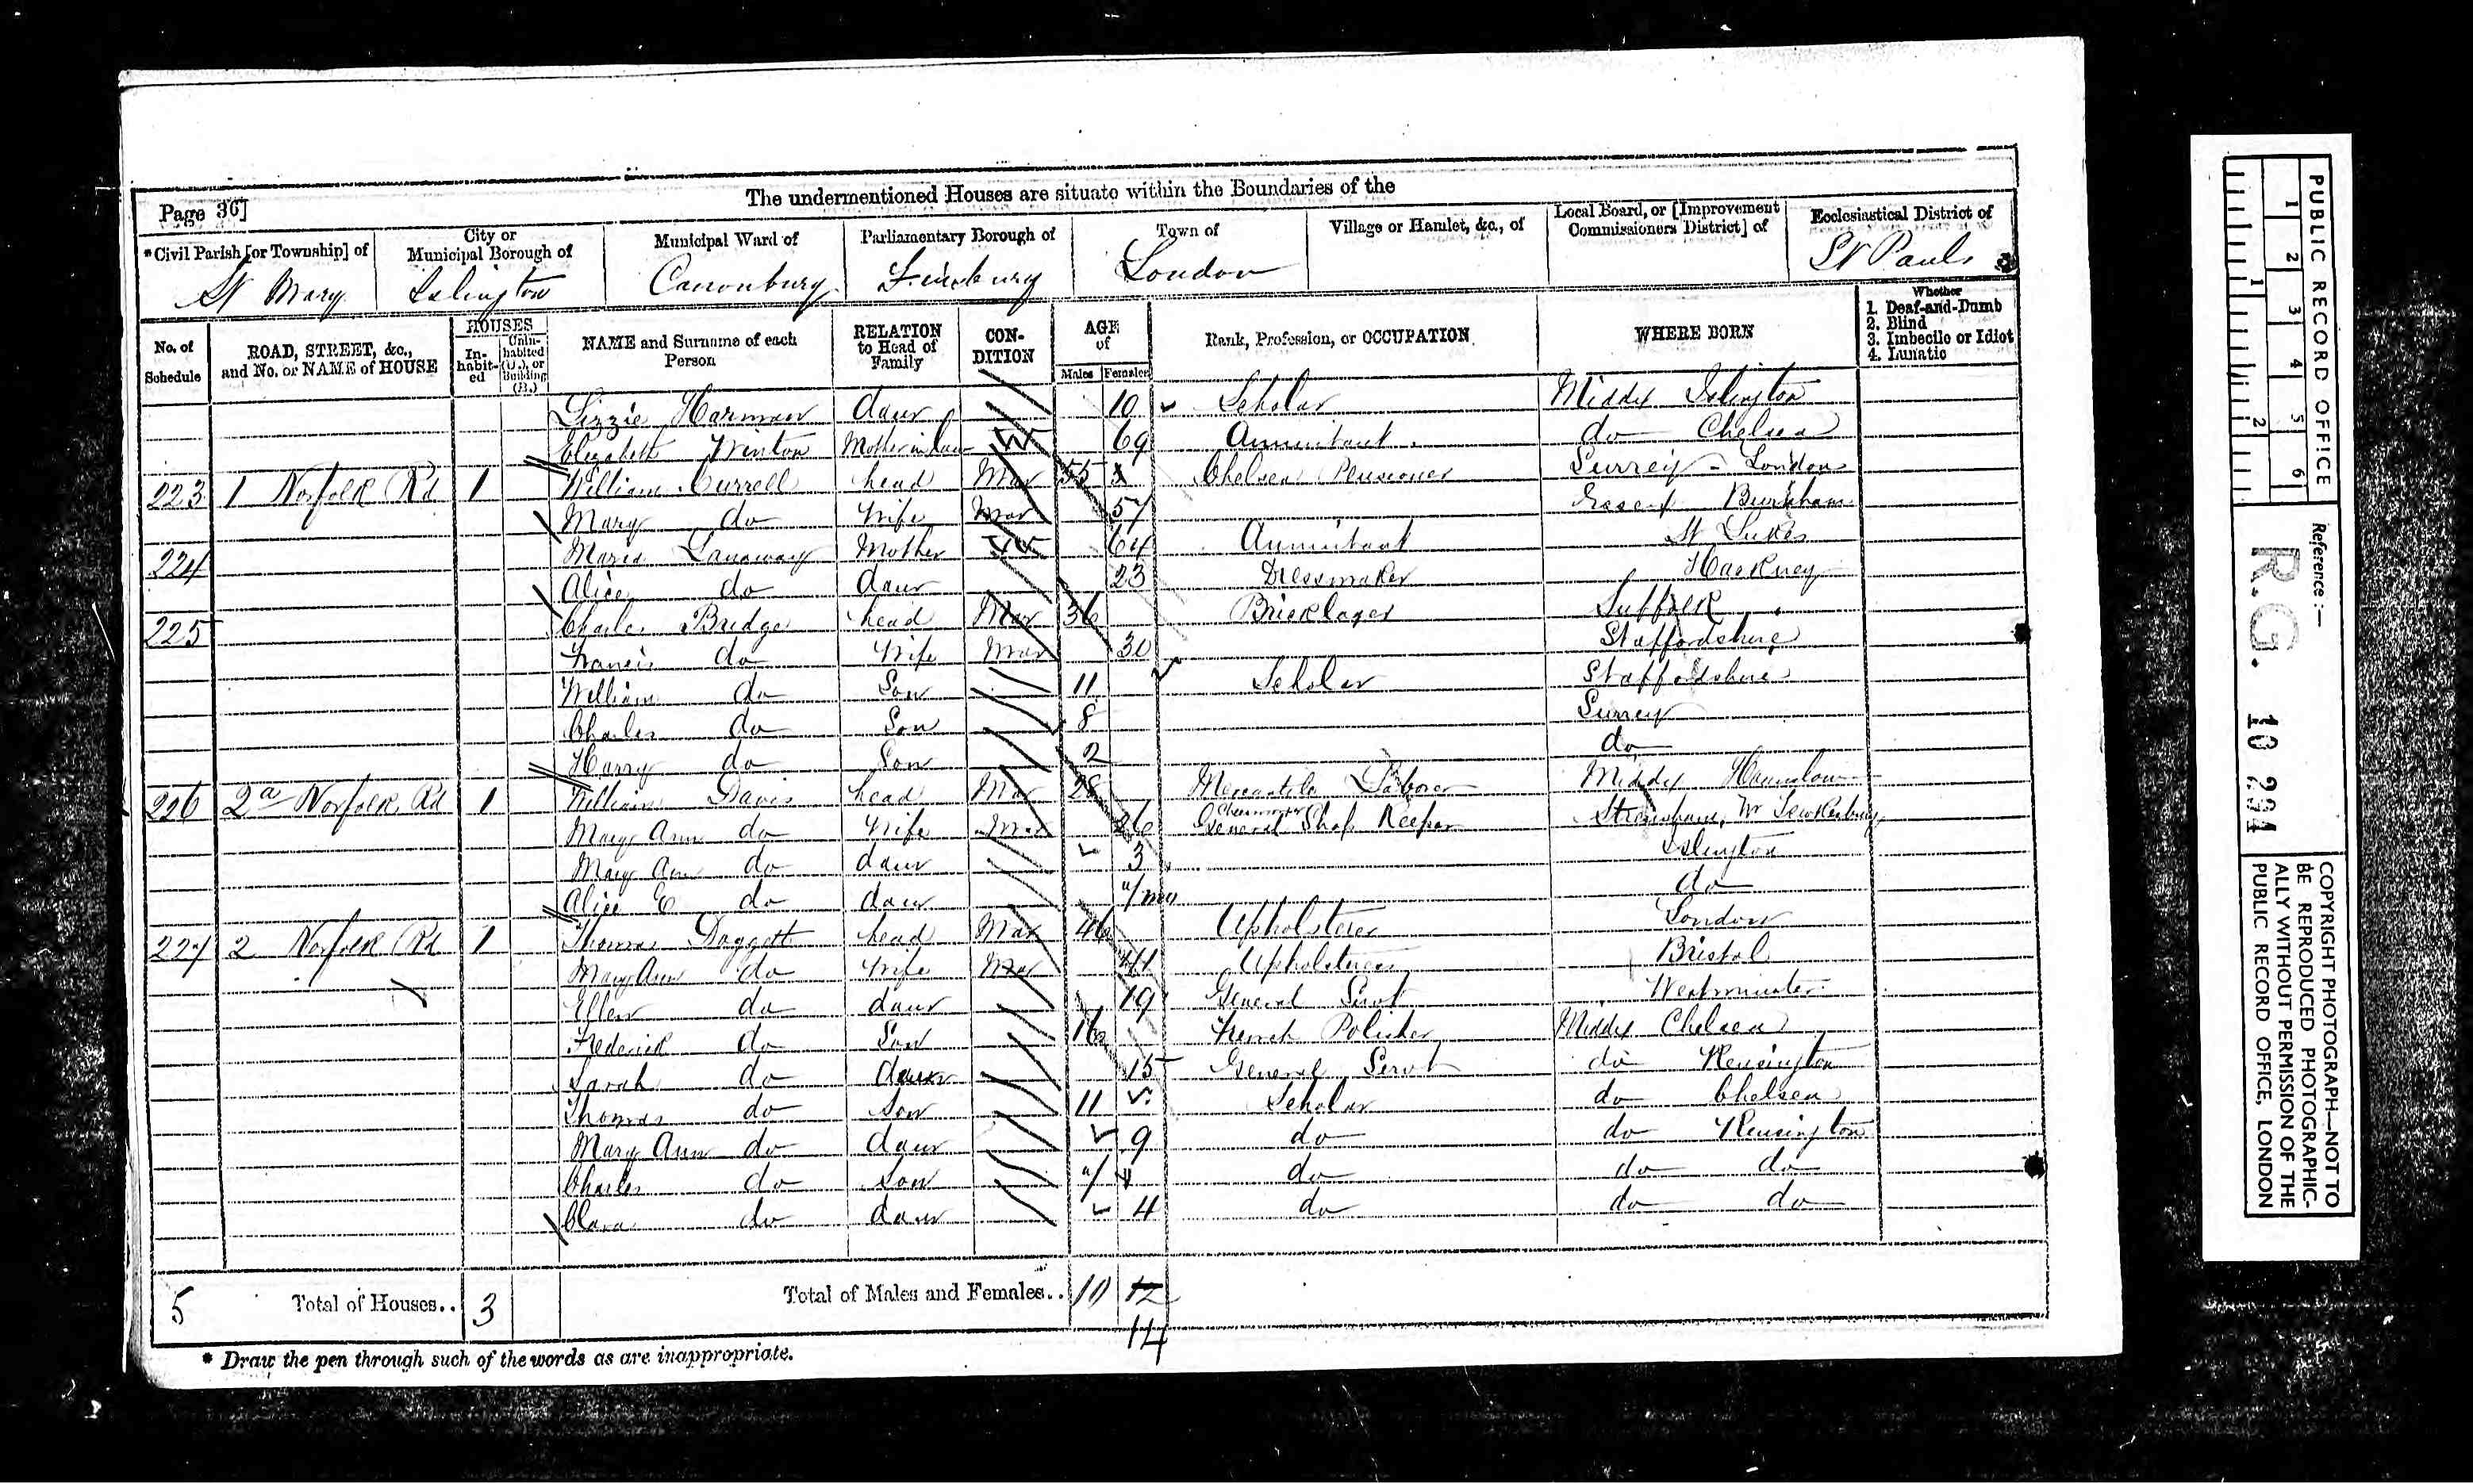 The undermentioned Houses are situate within the Boundaries of the
Page 36]
*Civil Parish [or Township] of
City or Municipal Borough of
Municipal Ward of
Parliamentary Borough of
Town of
Village or Hamlet, &c., of
Local Board, or [Improvement Commissioners District] of
Ecclesiastical District of
St Mary Islington Canonbury Finsbury London St Pauls
No. of Schedule
ROAD, STREET, &c., and No. or NAME of HOUSE
HOUSES
In-habit-ed
Unin-habited (U.), or Building (B.)
NAME and Surname of each Person
RELATION to Head of Family
CON-DITION
AGE of
Males Females
Rank, Profession, or OCCUPATION
WHERE BORN
Whether
1. Deaf-and-Dumb
2. Blind
3. Imbecile or Idiot
4. Lunatic
Lizzie Harman daur 10 Scholar Middx Islington
Elizabeth Winton Mother in law 69 Annuitant do Chelsea
223 1 Norfolk Rd 1 William Currell head Mar 55 Chelsea Pensioner Surrey - London
Mary do Wife Mar 57 Essex
224 Maria Mother 64 Annuitant St Lukes
Alice do daur 23 Dressmaker Hackney
225 Charles Bridge head Mar 36 Bricklayer Suffolk
Francis do Wife Mar 30 Staffordshire
William do Son 11 Scholar Staffordshire
Charles do Son 8 Surrey
Harry do Son 2 do
226 2a Norfolk Rd 1 William Davis head Mar 28 Mercantile Laborer Middx Hounslow
Mary Ann do Wife Mar 26 General Shop Keeper Strensham, Nr Tewkesbury
Mary Ann do daur 3 Islington
Alice E do daur mo do
227 2 Norfolk Rd 1 Thomas Daggett head Mar 46 Upholsterer London
Mary Ann do Wife Mar 41 Upholsteress Bristol
Ellen do daur 19 General Servt Westminster
Frederick do Son 16 French Polisher Middx Chelsea
Sarah do daur 15 General Servt do Kensington
Thomas do Son 11 Scholar do Chelsea
Mary Ann do daur 9 do do Kensington
Charles do Son 7 do do do
Clara do daur 4 do do do
5 Total of Houses.. 3 Total of Males and Females.. 10 12
14
* Draw the pen through such of the words as are inappropriate.
PUBLIC RECORD OFFICE
1 2 3 4 5 6
1 2
Reference:—
R.G. 10 294
COPYRIGHT PHOTOGRAPH—NOT TO
BE REPRODUCED PHOTOGRAPHIC-
ALLY WITHOUT PERMISSION OF THE
PUBLIC RECORD OFFICE, LONDON